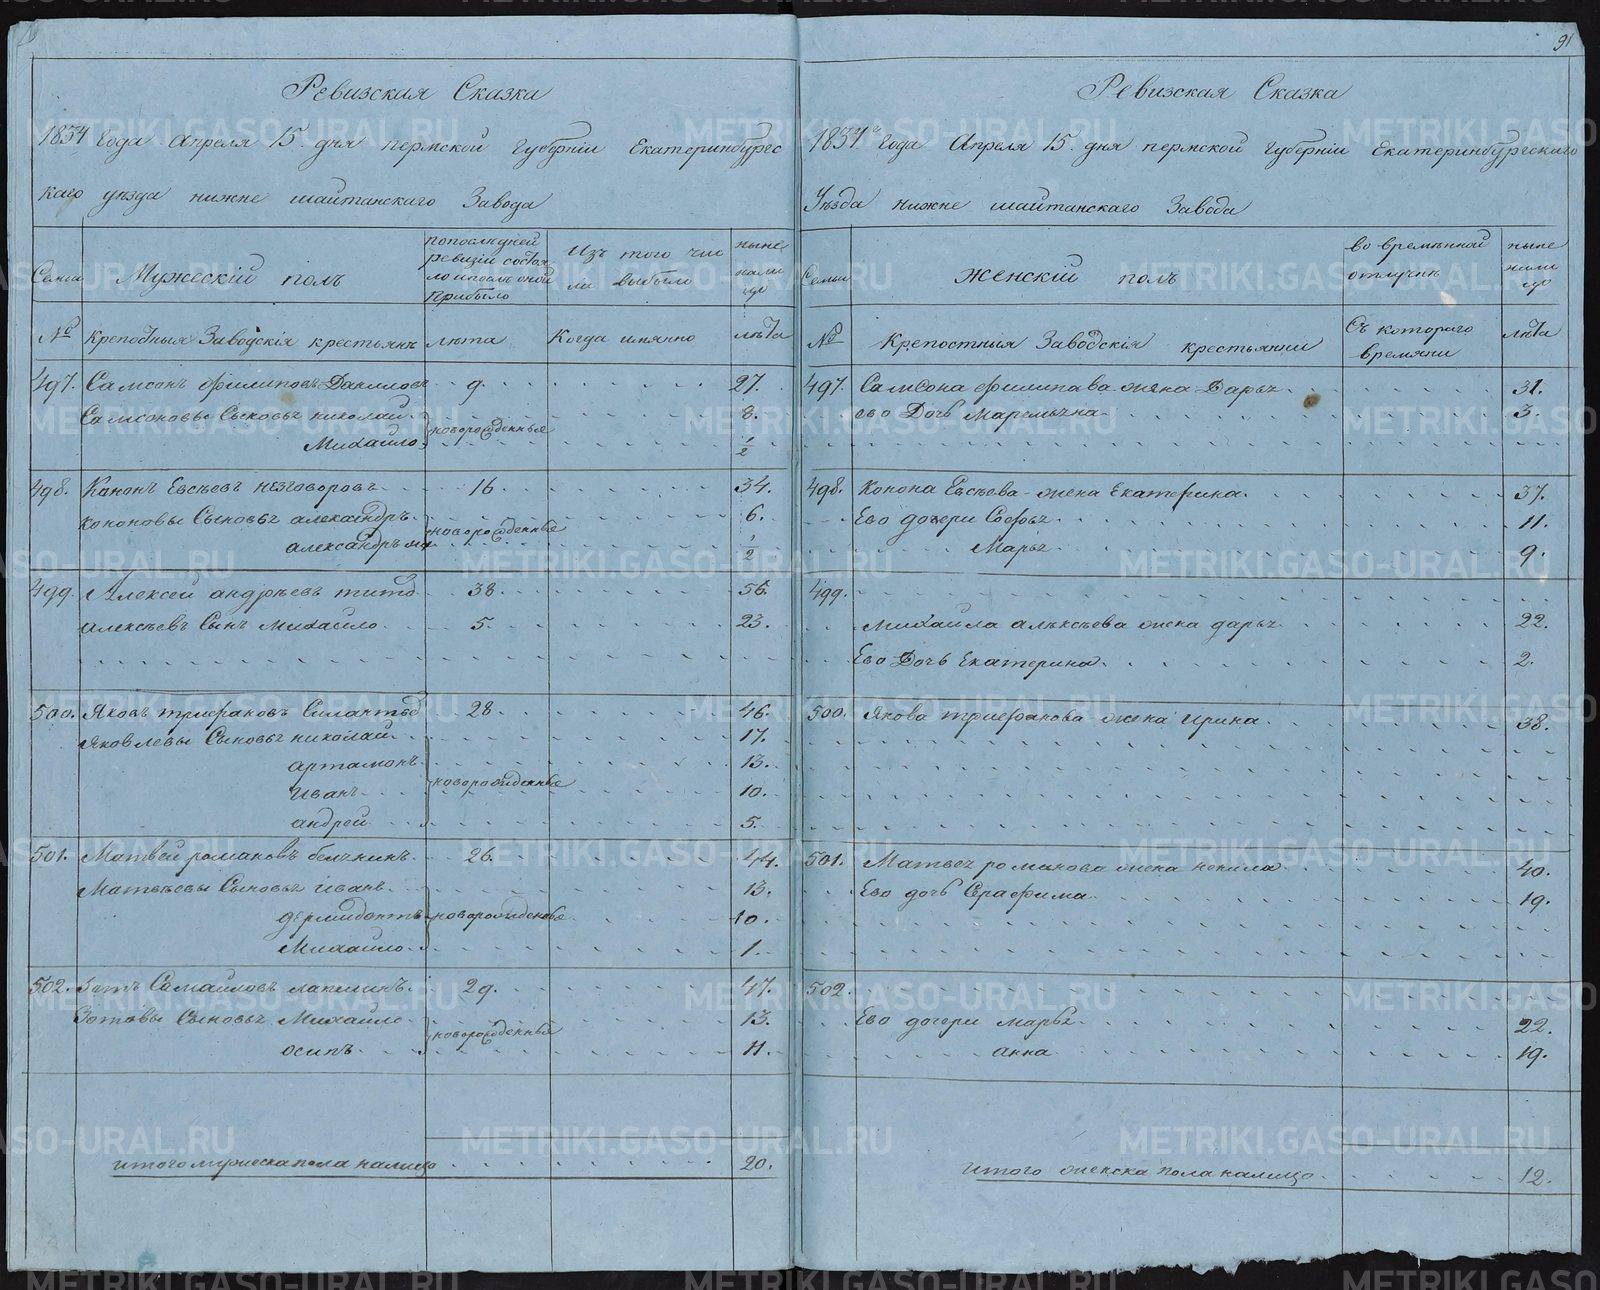 91
Ревизская Сказка
1834 года Апреля 15. дня пермской губерніи Екатеринбургс
каго уѣзда нижне шайтанскаго Завода
Семьи
Мужескій полъ
попослѣдней ревизіи состоя ло ипослѣ оной прибыло
Изъ того чис ла выбыло
ныне нали цо
№
Крепостныя Заводскія крестьянѣ
лѣта
Когда имянно
лѣта
497. Самсонъ Филиповъ Даниловъ 9. 27.
Самсоновы Сыновья николай 8.
новорожденные
Михайло 1/2
498. Канонъ Евсѣевъ незговоровъ 16. 34.
Кононовы Сыновья александръ 6.
новорожденные
александръ 1/2
499. Алексей андрѣевъ титов 38. 56.
Алексѣевъ Сынъ Михайло 5. 23.
500. Яковъ трифановъ Силантьев 28. 46.
Яковлевы Сыновья николай 17.
артамонъ 13.
новорожденные
Иванъ 10.
андрей 5.
501. Матвей романовъ 26. 44.
Матвѣевы Сыновья иванъ 13.
дермидонтъ новорожденные 10.
Михайло 1.
502. Зотъ Самайловъ лапшинъ 29. 47.
Зотовы Сыновья Михайло 13.
новорожденные
осипъ 11.
итого мужеска пола налицо 20.
Ревизская Сказка
1834 года Апреля 15. дня пермской губерніи Екатеринбургскаго
Уѣзда нижне шайтанскаго Завода
Семьи
Женскій полъ
во времянной отлучкѣ
ныне нали цо
№
Крепостныя Заводскія крестьянки
Съ котораго времяни
лѣта
497. Самсона Филипава жена Дарья 31.
ево Дочь Маремьяна 3.
498. Конона Евсѣева жена Екатерина 37.
Ево дочери Софья 11.
Марья 9.
499.
Михайла алѣксѣева жена дарья 22.
Ево Дочь Екатерина 2.
500. Якова трифанова жена ирина 38.
501. Матвея романова жена ненила 40.
Ево дочь Серафима 19.
502.
Ево дочери марья 22.
анна 19.
итого женска пола налицо 12.
METRIKI.GASO-URAL.RU